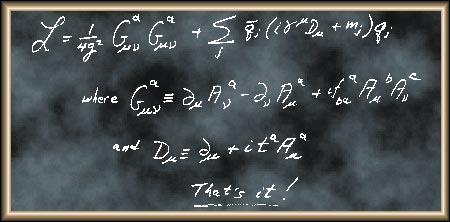 ℒ = 1/4g² G^a_μν G^a_μν + Σ_j q̄_j (iγ^μ D_μ + m_j) q_j
where G^a_μν ≡ ∂_μ A^a_ν - ∂_ν A^a_μ + i f^a_bc A^b_μ A^c_ν
and D_μ ≡ ∂_μ + i t^a A^a_μ
That's it!